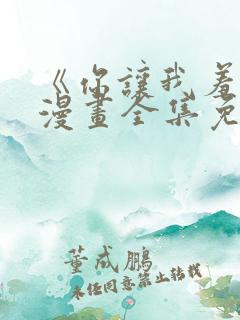 《你讓我羞
漫畫全集免
董成鵬
未经同意禁止转载